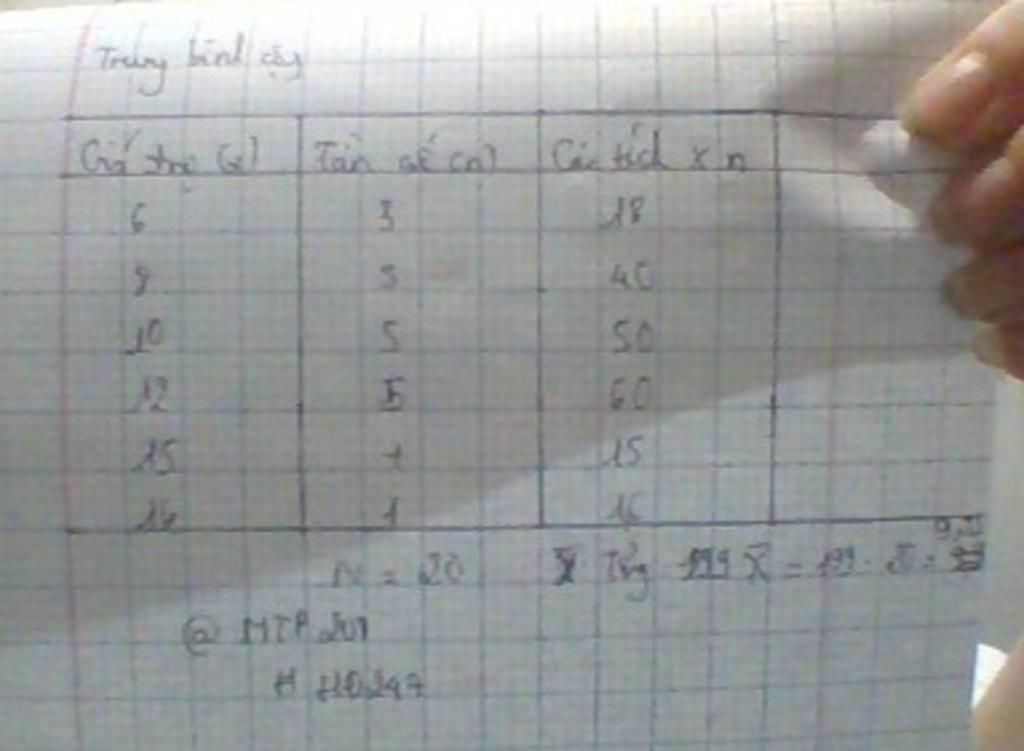 Trung bình cộng
Giá trị (x) Tần số (n) Các tích x n
6 3 18
8 5 40
10 5 50
12 5 60
15 1 15
16 1 16
N = 20 Tổng 199 X̄ = 199 : 20 =
@ MTP 201